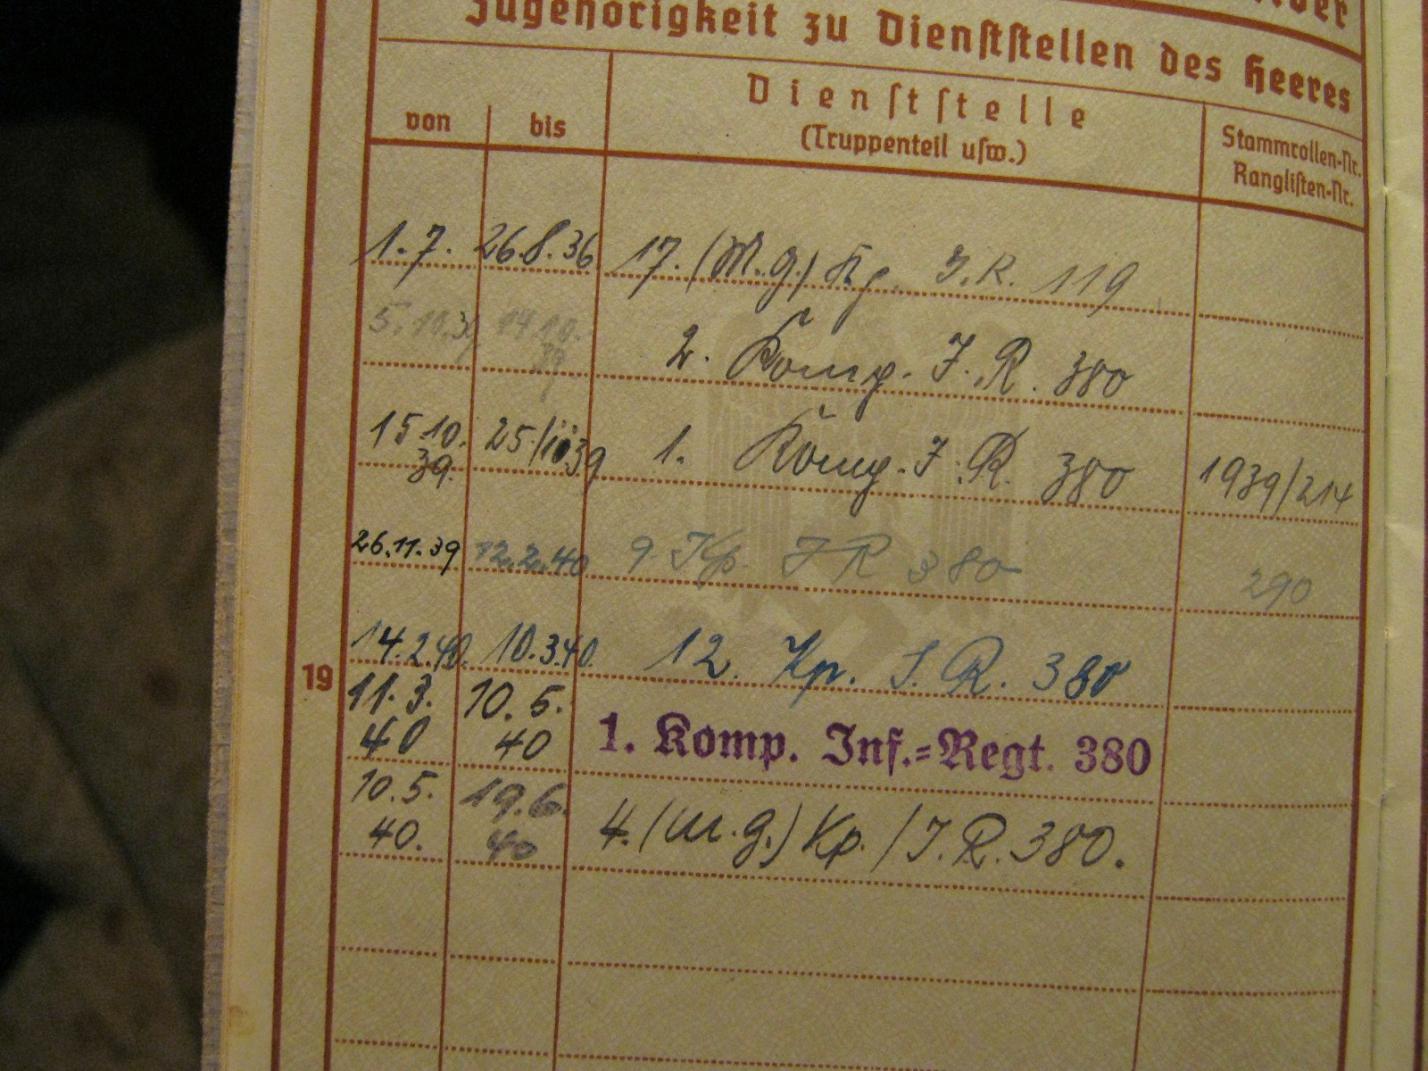 Zugehörigkeit zu Dienststellen des Heeres
von bis Dienststelle (Truppenteil usw.) Stammrollen-Nr. Ranglisten-Nr.
1.7. 26.8.36 17. (M.g.) Kp. I.R. 119
5.10.39 14.10.39 2. Komp. I.R. 380
15.10.39. 25/11 39 1. Komp. I.R. 380 1939/214
26.11.39 12.2.40 9 Kp. I R 380 290
14.2.40. 10.3.40. 12. Kp. I.R. 380
19
11.3.40 10.5.40 1. Komp. Inf.=Regt. 380
10.5.40. 19.6.40 4. (M.g.) Kp. / I.R. 380.